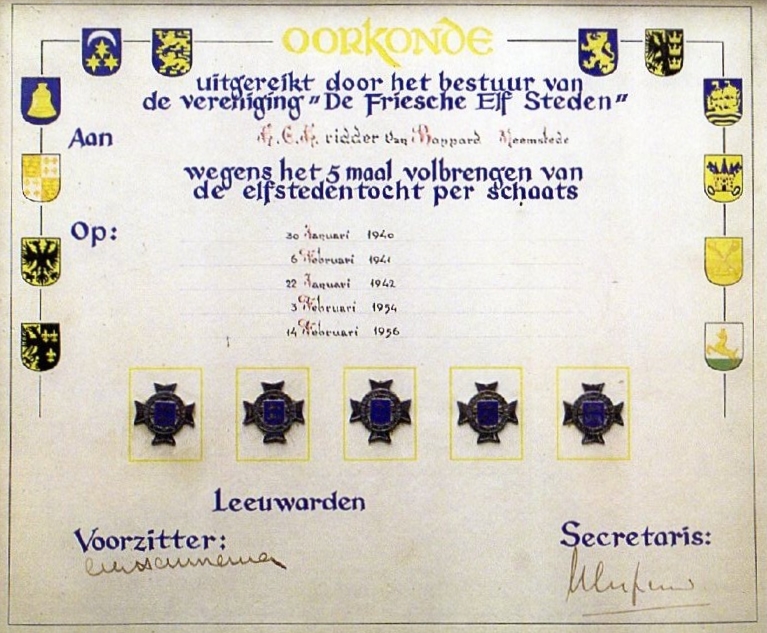 OORKONDE
uitgereikt door het bestuur van
de vereniging "De Friesche Elf Steden"
Aan
ridder van Rappard Heemstede
wegens het 5 maal volbrengen van
de elfstedentocht per schaats
Op:
30 Januari 1940
6 Februari 1941
22 Januari 1942
3 Februari 1954
14 Februari 1956
Leeuwarden
Voorzitter:
Secretaris: